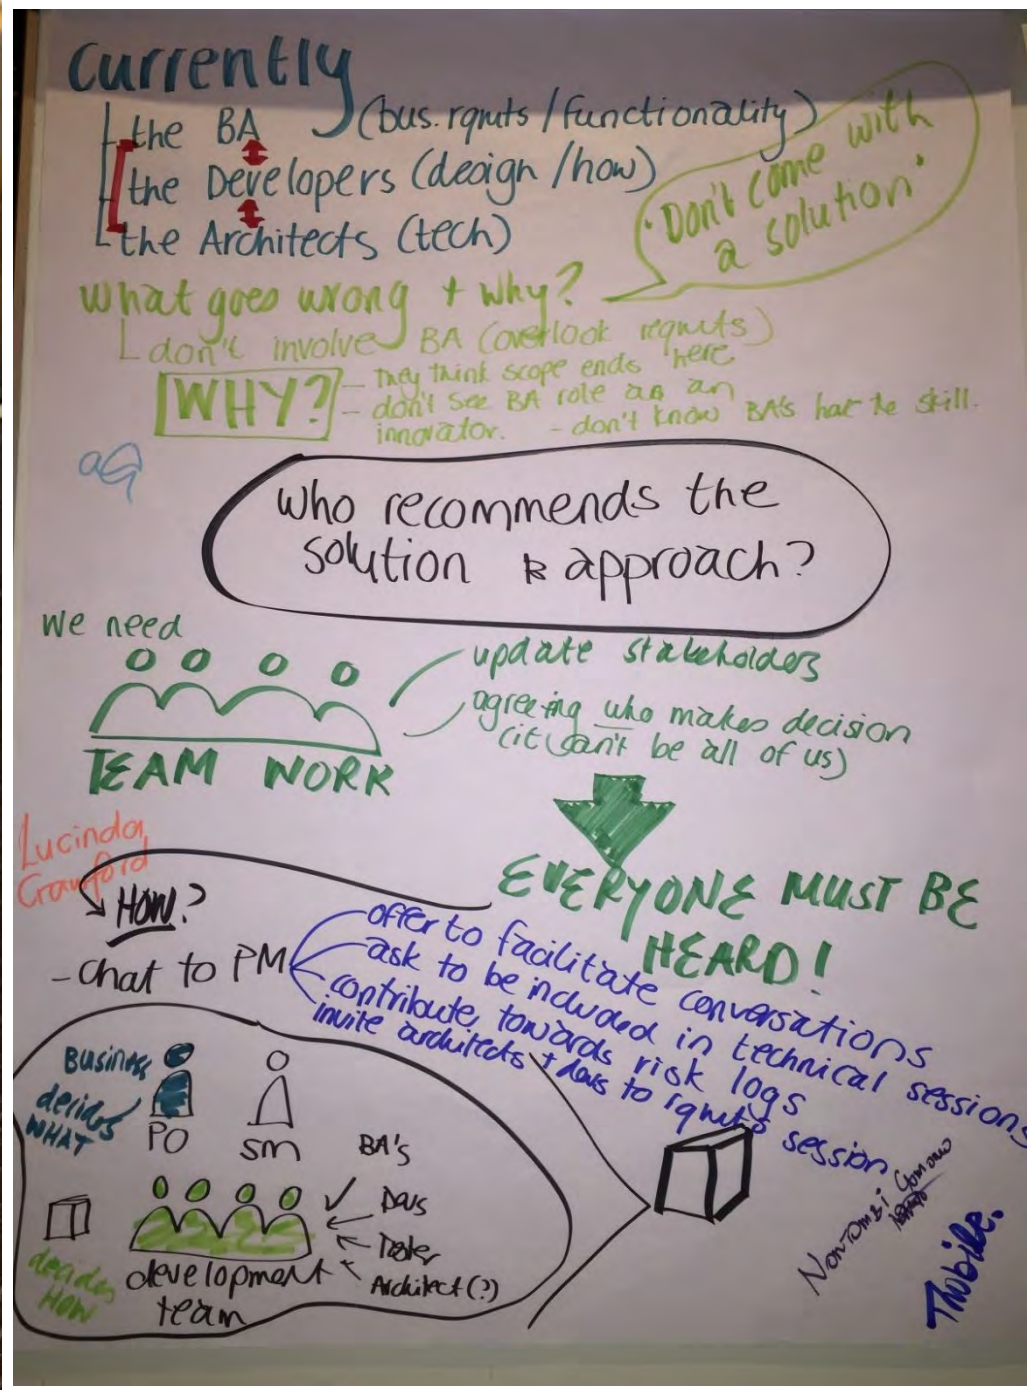 Currently
the BA (bus. rqmts / functionality)
the Developers (design / how)
the Architects (tech)
'Don't come with
a solution'
What goes wrong + why?
don't involve BA (overlook rqmts)
WHY?
- They think scope ends here
- don't see BA role as an
innovator. - don't know BA's hat te skill.
Who recommends the
solution & approach?
We need
TEAM WORK
update stakeholders
agreeing who makes decision
(it can't be all of us)
EVERYONE MUST BE
HEARD!
Lucinda
Crawford
HOW?
- chat to PM
offer to facilitate conversations
ask to be included in technical sessions
contribute towards risk logs
invite architects + devs to rqmts session
Business
decides
WHAT
PO
SM
BA's
Devs
Tester
Architect (?)
decides
HOW
development
team
Nontombi
Thobile.